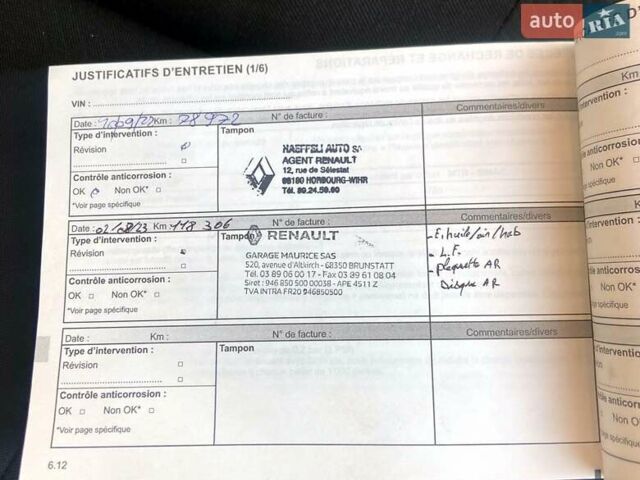 auto RIA.com
JUSTIFICATIFS D'ENTRETIEN (1/6)
VIN :
Date : Km : 78 972 N° de facture : Commentaires/divers
Type d'intervention : Tampon
Révision
Contrôle anticorrosion :
OK □ Non OK* □
*Voir page spécifique
HAEFFELI AUTO SA
AGENT RENAULT
12, rue de Sélestat
68180 HORBOURG-WIHR
Tél. 89.24.59.90
Date : 02/08/23 Km 118 306 N° de facture : Commentaires/divers
Type d'intervention : Tampon
Révision
□
Contrôle anticorrosion :
OK □ Non OK* □
*Voir page spécifique
RENAULT
GARAGE MAURICE SAS
520, avenue d'Altkirch - 68350 BRUNSTATT
Tél. 03 89 06 00 17 - Fax 03 89 61 08 04
Siret : 946 850 500 00038 - APE 4511 Z
TVA INTRA FR20 946850500
- F. huile/air/hab
- L.F.
- plaquette AR
Disque AR
Date : Km : N° de facture : Commentaires/divers
Type d'intervention : Tampon
Révision □
□
Contrôle anticorrosion :
OK □ Non OK* □
*Voir page spécifique
6.12